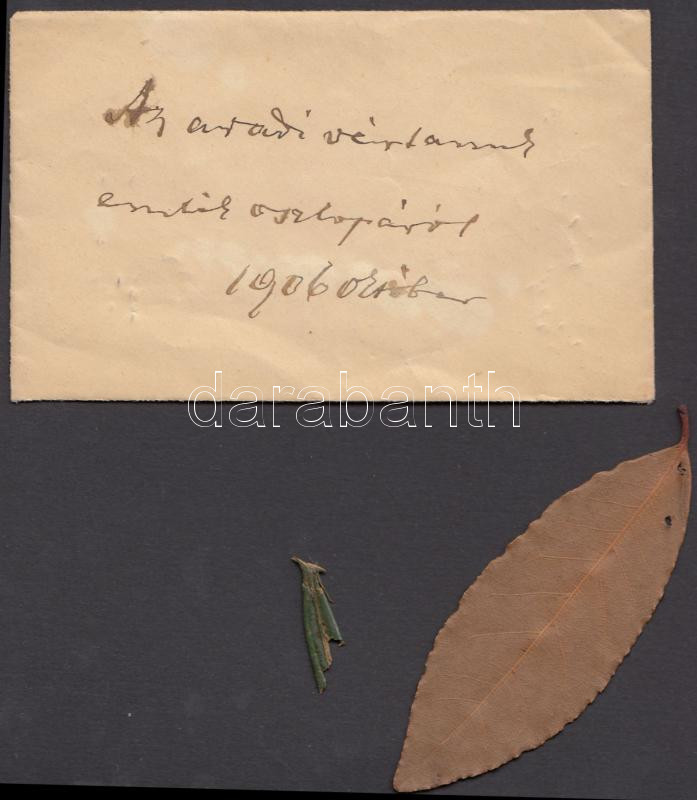 Az aradi vértanuk
emlék oszlopáról
1906 október
darabanth